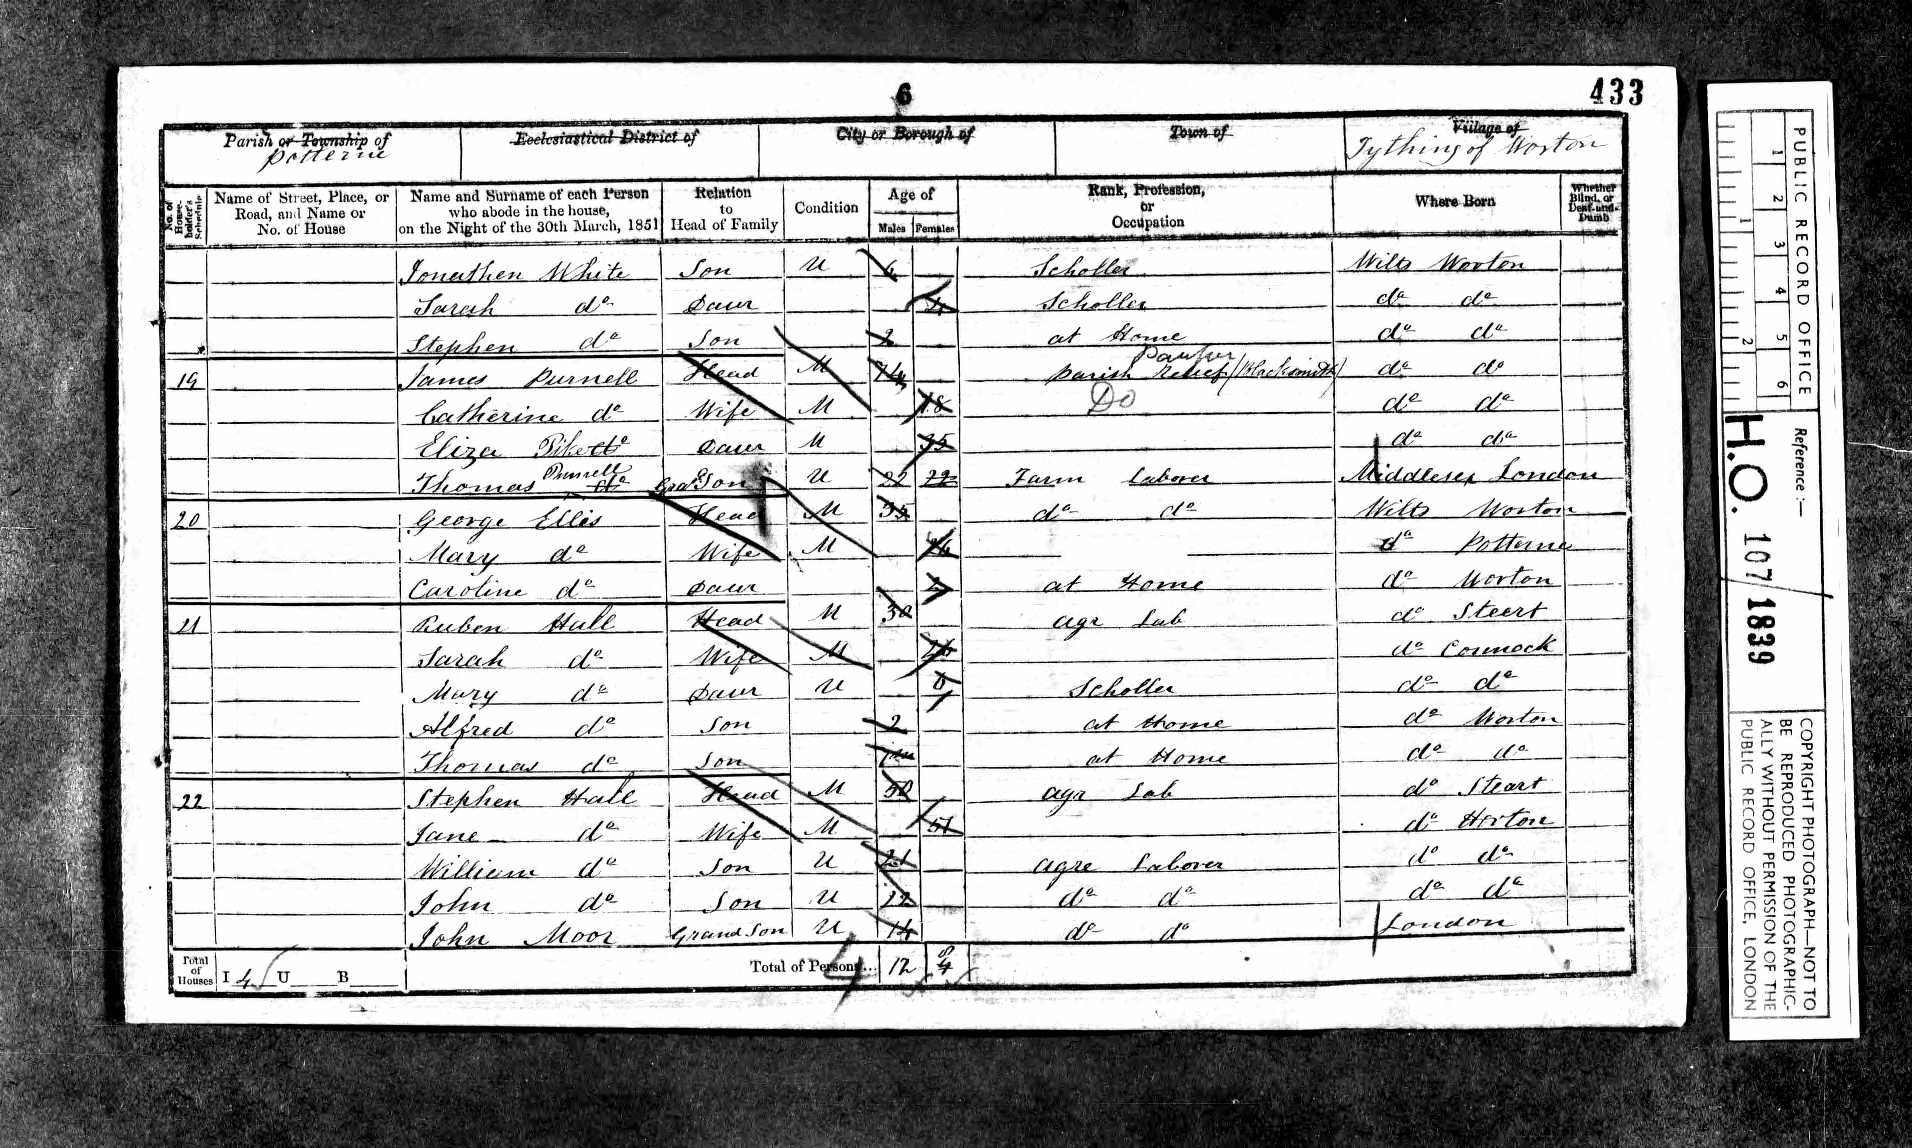 6
433
Parish or Township of
Potterne
Ecclesiastical District of
City or Borough of
Town of
Village of
Tything of Worton
No. of House-holder's Schedule
Name of Street, Place, or Road, and Name or No. of House
Name and Surname of each Person who abode in the house, on the Night of the 30th March, 1851
Relation to Head of Family
Condition
Age of
Males
Females
Rank, Profession, or Occupation
Where Born
Whether Blind, or Deaf-and-Dumb
Jonathen White Son U 6 Scholler Wilts Worton
Sarah do Daur 4 Scholler do do
Stephen do Son 2 at Home do do
19 James Purnell Head M 74 Parish Relief Pauper (Blacksmith) do do
Catherine do Wife M Do do do
Eliza Pike do Daur M 35 do do
Thomas Purnell do Grd Son U 22 22 Farm Laborer Middlesex London
20 George Ellis Head M do do Wilts Worton
Mary do Wife M do Potterne
Caroline do Daur at Home do Worton
21 Ruben Hall Head M 30 agr Lab do Steert
Sarah do Wife M do
Mary do Daur U Scholler do do
Alfred do Son 2 at Home do Worton
Thomas do Son at Home do do
22 Stephen Hall Head M 50 agr Lab do Steart
Jane do Wife M 51 do Worton
William do Son U 21 agre Laborer do do
John do Son U 12 do do do do
John Moor Grand Son U 14 do do London
Total of Houses I 4 U B Total of Persons... 12 8 4
4
PUBLIC RECORD OFFICE
1 2 3 4 5 6
1 2
Reference :—
H.O. 107/1839
COPYRIGHT PHOTOGRAPH—NOT TO
BE REPRODUCED PHOTOGRAPHIC-
ALLY WITHOUT PERMISSION OF THE
PUBLIC RECORD OFFICE, LONDON